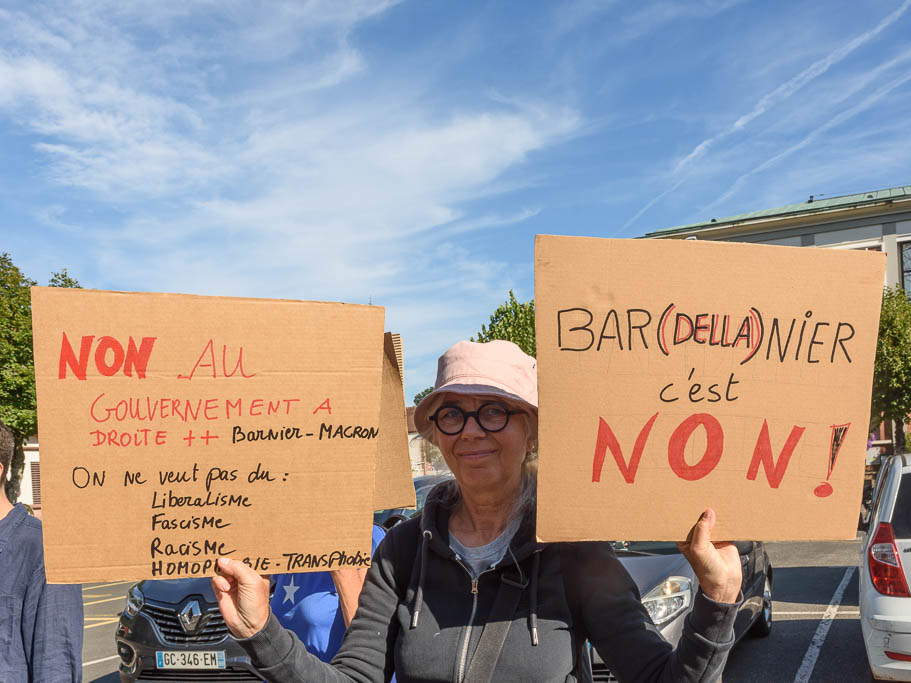 NON AU
GOUVERNEMENT A
DROITE ++ Barnier-MACRON
ON ne veut pas du :
Liberalisme
Fascisme
Racisme
HOMOPHOBIE-TRANSPhobie
BAR(DELLA)NIER
c'est
NON!
GC-346-EM